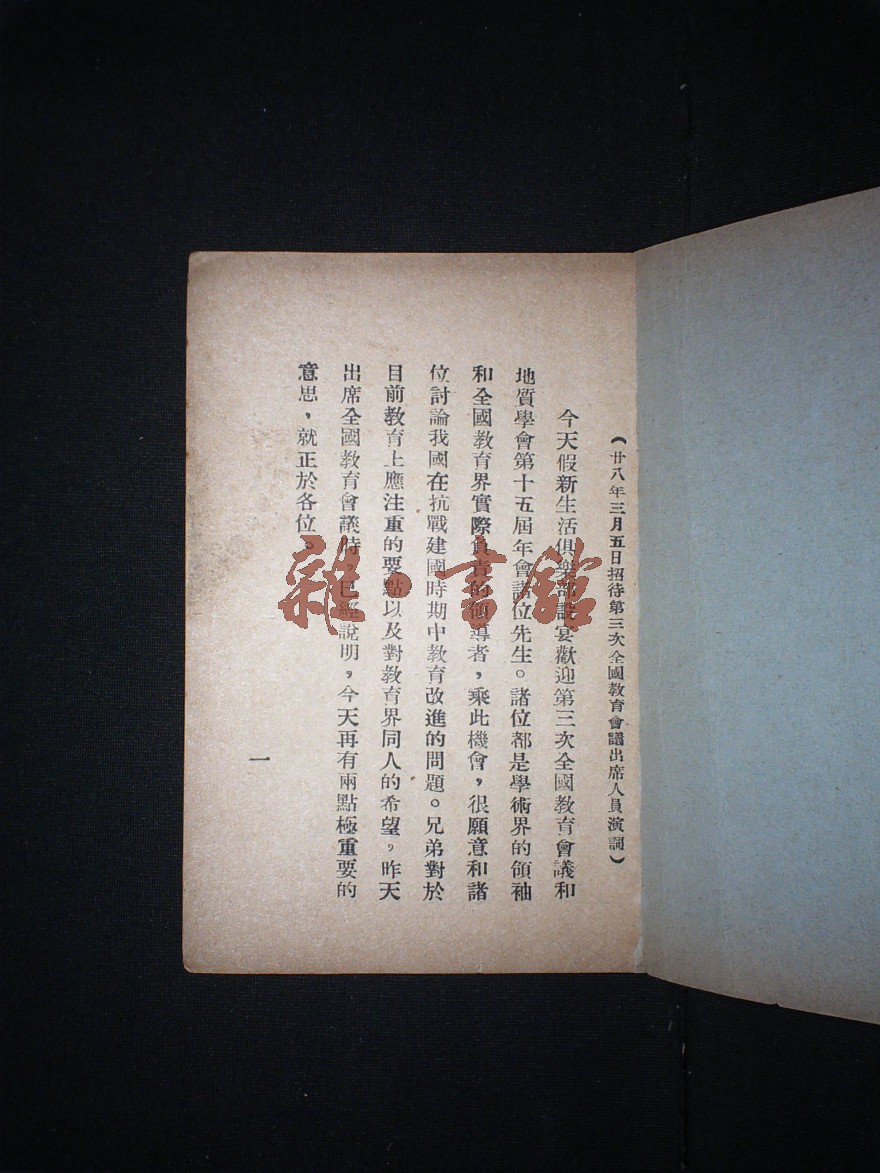 （廿八年三月五日招待第三次全國教育會議出席人員演詞）
今天假新生活俱樂部設宴歡迎第三次全國教育會議和
地質學會第十五屆年會諸位先生。諸位都是學術界的領袖
和全國教育界實際負責的領導者，乘此機會，很願意和諸
位討論我國在抗戰建國時期中教育改進的問題。兄弟對於
目前教育上應注重的要點以及對教育界同人的希望，昨天
出席全國教育會議時，已經說明，今天再有兩點極重要的
意思，就正於各位。
一
雜·書館